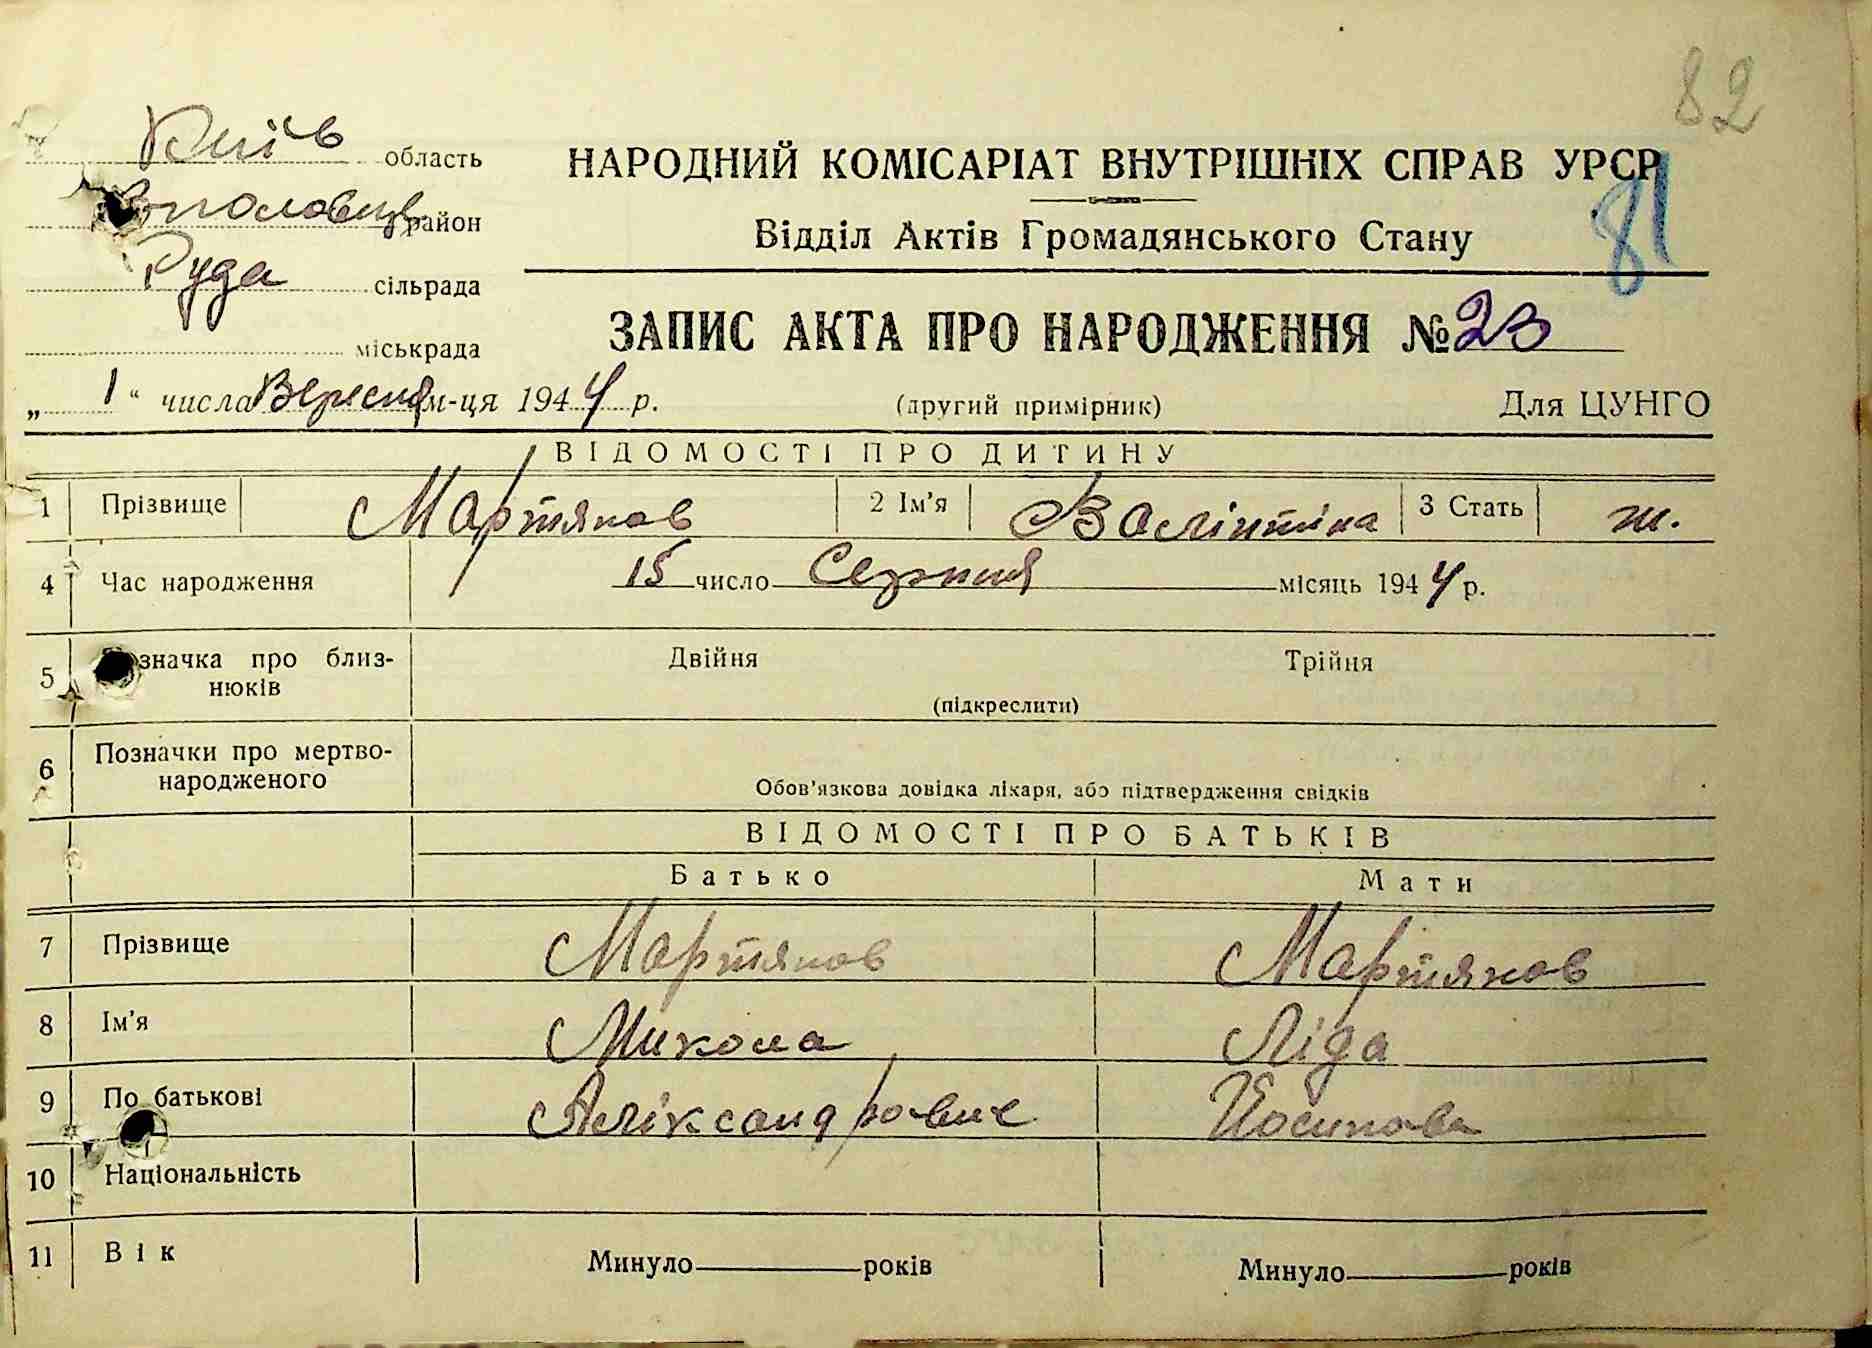 82
Київ область
НАРОДНИЙ КОМІСАРІАТ ВНУТРІШНІХ СПРАВ УРСР
81
район
Відділ Актів Громадянського Стану
Руда сільрада
ЗАПИС АКТА ПРО НАРОДЖЕННЯ № 23
міськрада
„ 1 “ числа Вересня м-ця 1944 р. (другий примірник) Для ЦУНГО
ВІДОМОСТІ ПРО ДИТИНУ
1 Прізвище Мартянов 2 Ім'я Валінтіна 3 Стать ж.
4 Час народження 15 число Серпня місяць 1944 р.
5 значка про близ- Двійня Трійня
нюків (підкреслити)
6 Позначки про мертво-
народженого Обов'язкова довідка лікаря, або підтвердження свідків
ВІДОМОСТІ ПРО БАТЬКІВ
Батько Мати
7 Прізвище Мартянов Мартянов
8 Ім'я Микола Ліда
9 По батькові Аліксандрович Йосипова
10 Національність
11 Вік Минуло років Минуло років